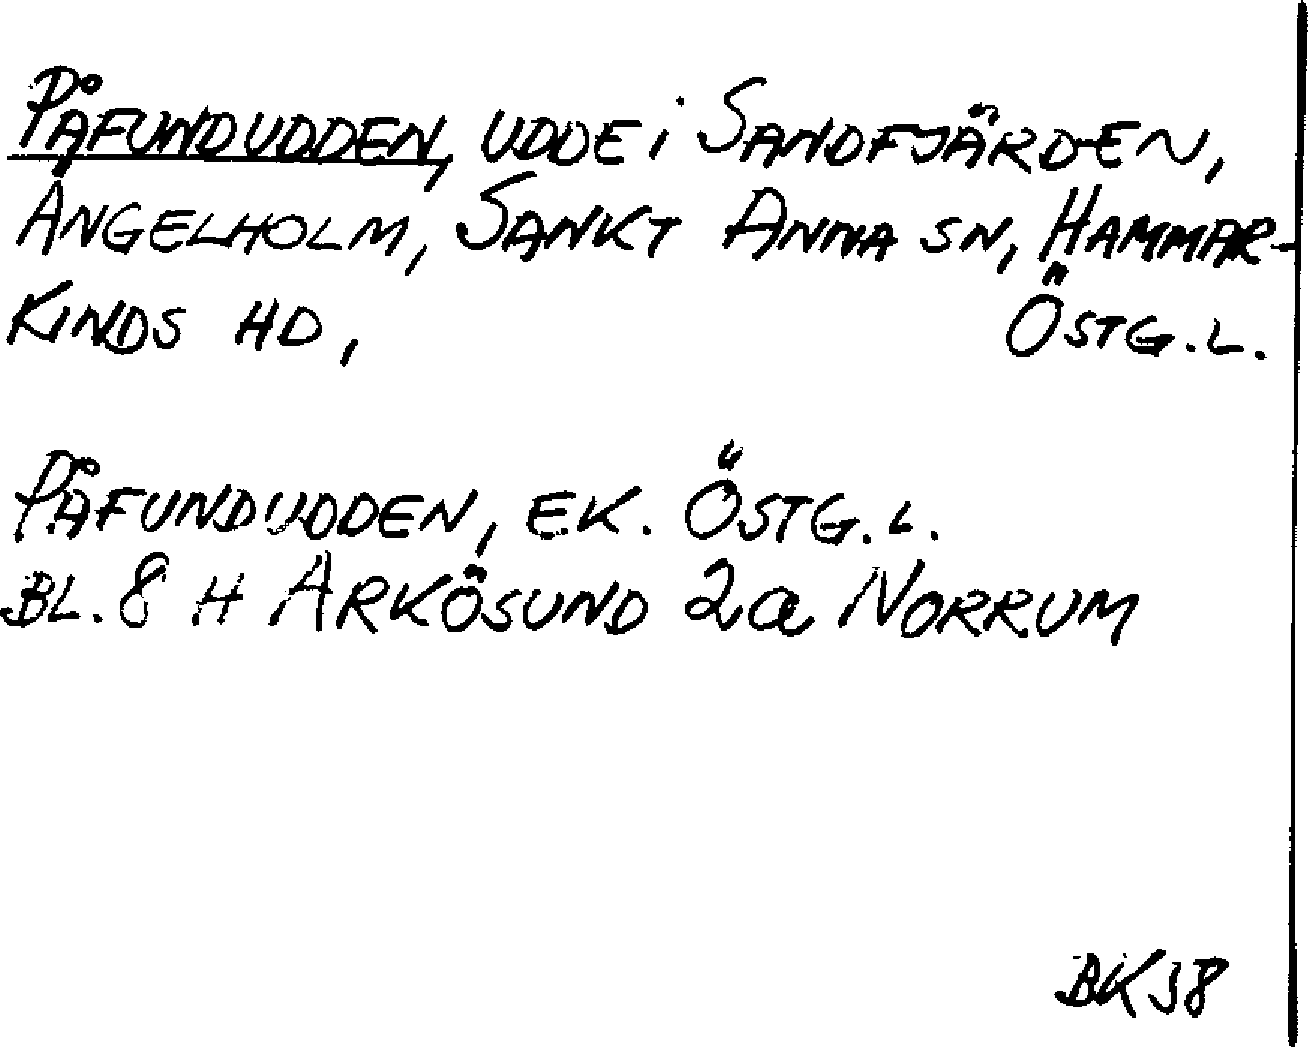 PÅFUNDUDDEN, UDDE i SANDFJÄRDEN,
ÄNGELHOLM, SANKT ANNA SN, HAMMAR-
KINDS HD, ÖSTG.L.
PÅFUNDUDDEN, EK. ÖSTG.L.
BL. 8 H ARKÖSUND 2a NORRUM